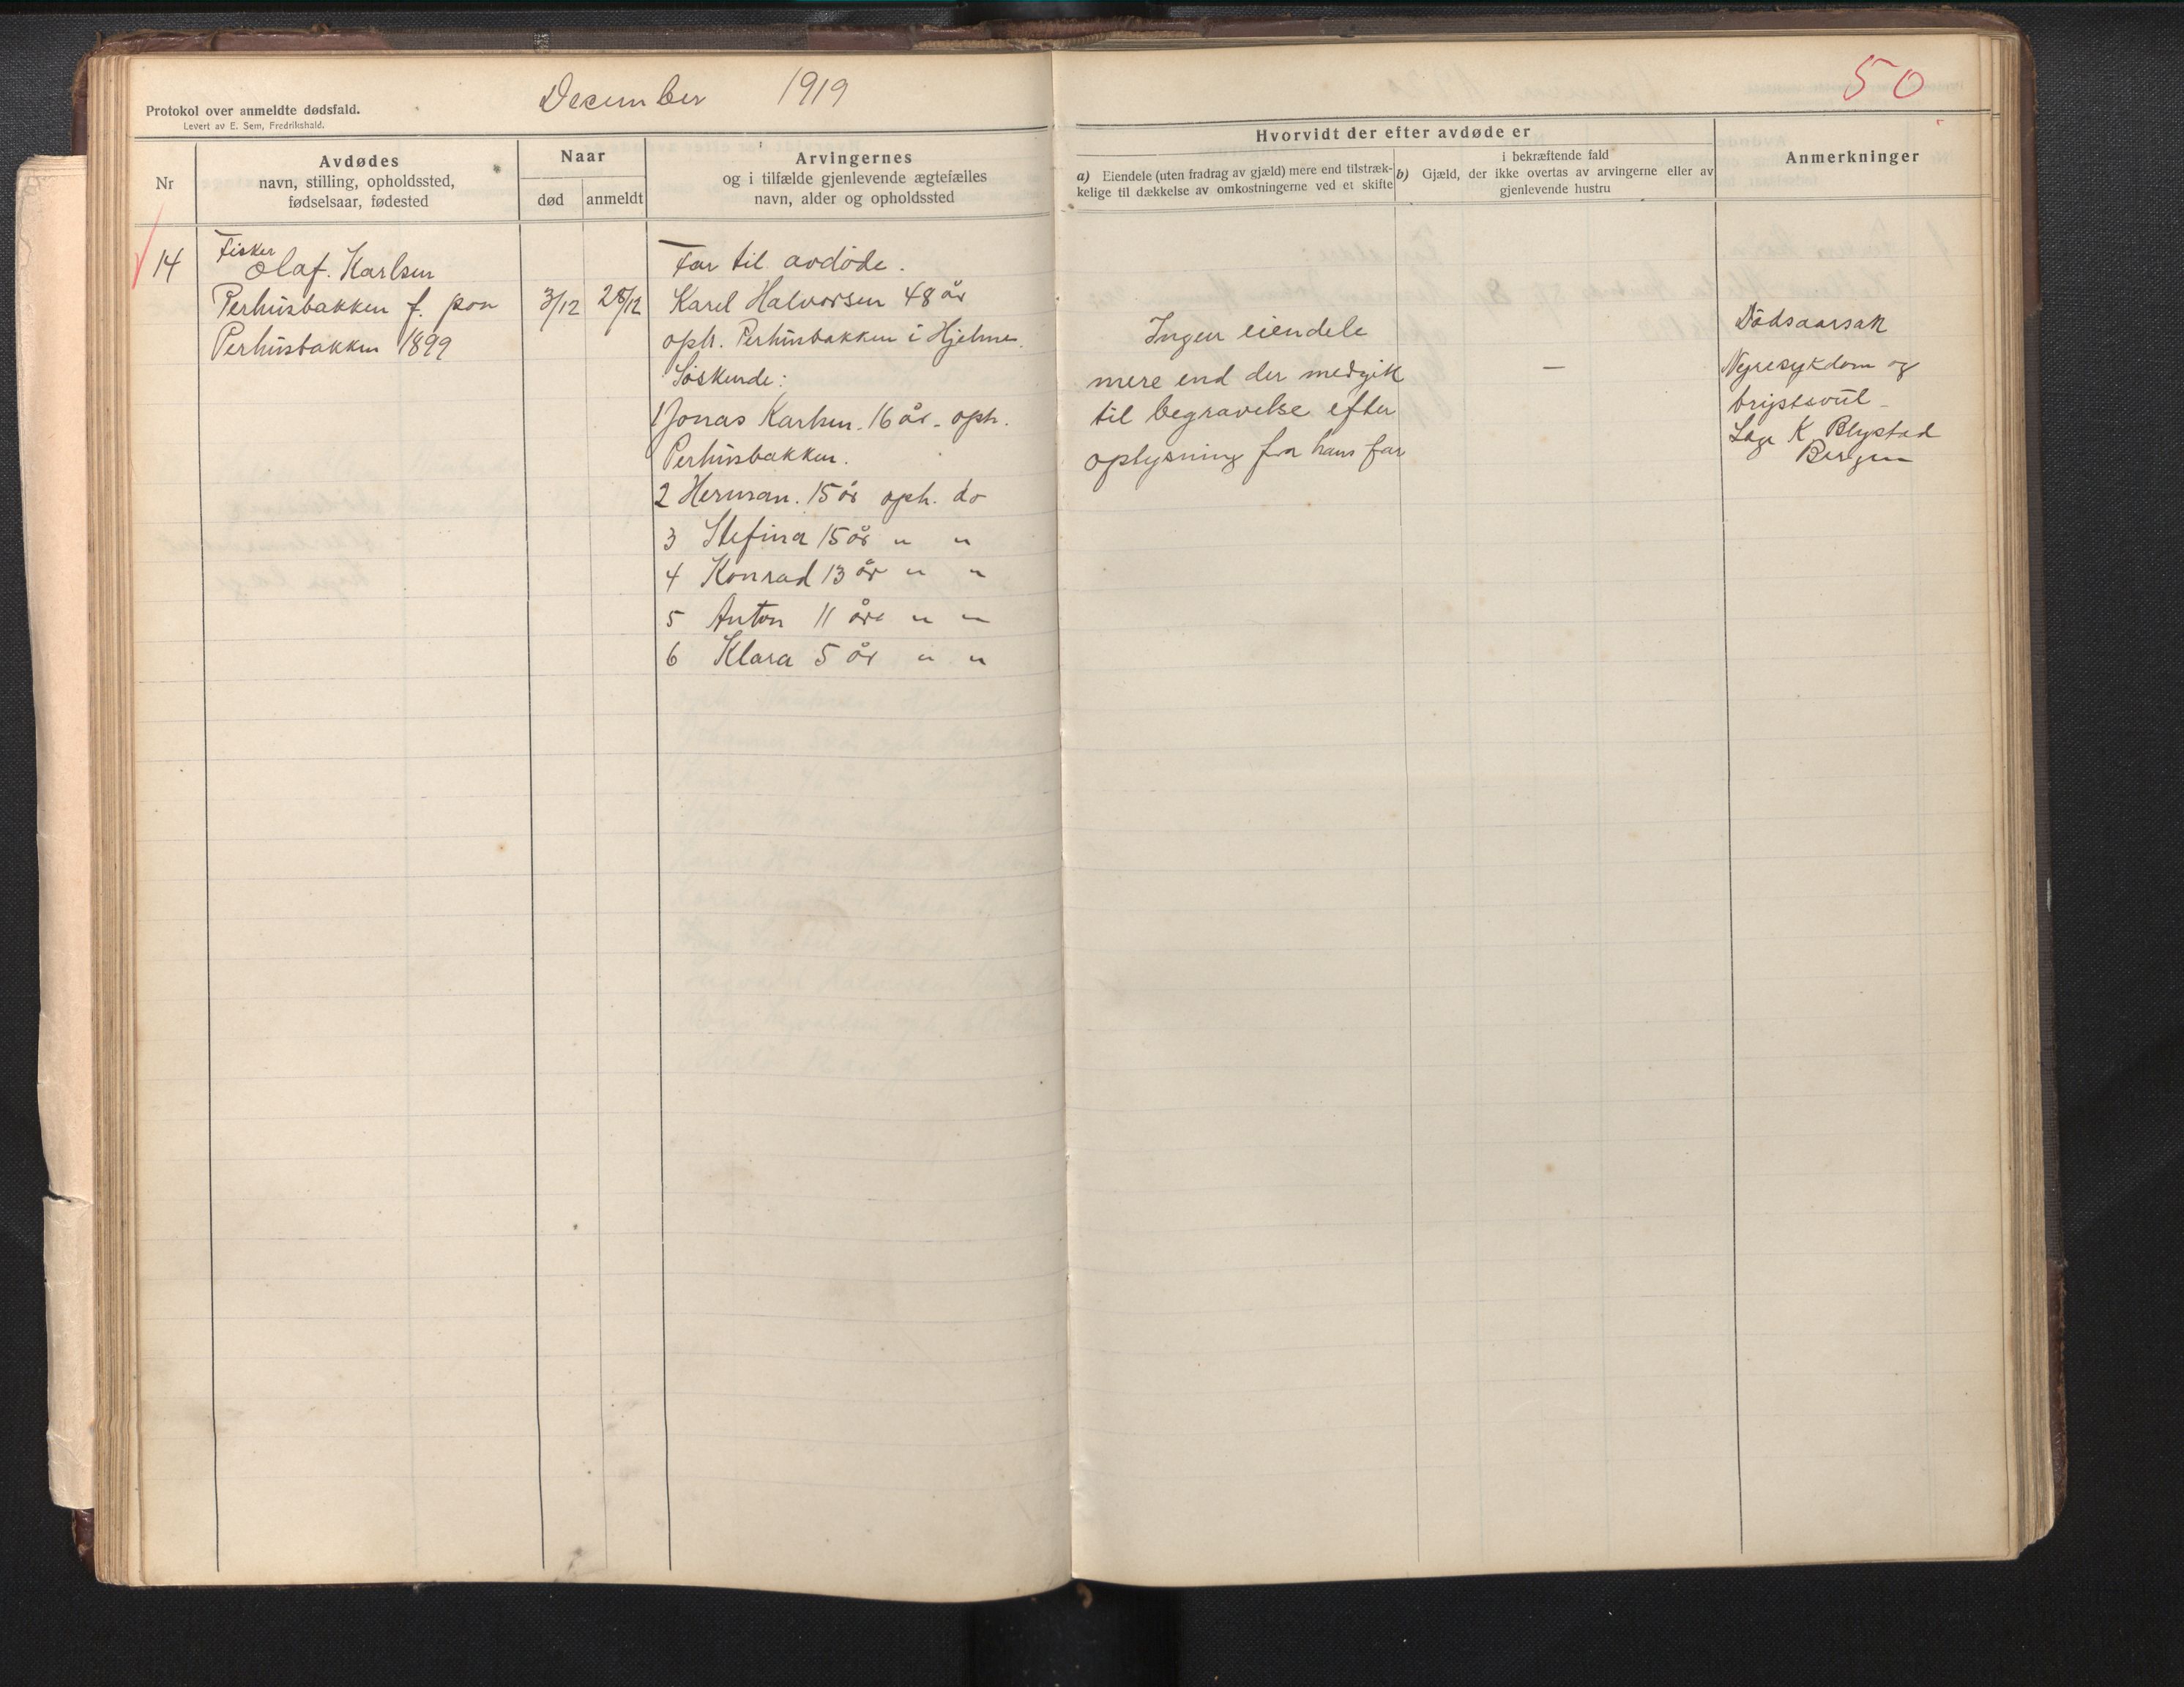 Protokol over anmeldte dødsfald.
Levert av E. Sem, Fredrikshald.
December 1919
50
Nr
Avdødes
navn, stilling, opholdssted,
fødselsaar, fødested
Naar
død
anmeldt
Arvingernes
og i tilfælde gjenlevende ægtefælles
navn, alder og opholdssted
Hvorvidt der efter avdøde er
a) Eiendele (uten fradrag av gjæld) mere end tilstræk-
kelige til dækkelse av omkostningerne ved et skifte
b) i bekræftende fald
Gjæld, der ikke overtas av arvingerne eller av
gjenlevende hustru
Anmerkninger
14
Fisker
Olaf. Karlsen
Perhusbakken f. paa
Perhusbakken 1899
3/12
28/12
Far til avdøde.
Karel Halvorsen 48 år
oph. Perhusbakken i Hjelme.
Søskende:
1 Jonas Karlsen. 16 år. oph.
Perhusbakken.
2 Herman. 15 år oph. do
3 Stefina 15 år " "
4 Konrad 13 år " "
5 Anton 11 år " "
6 Klara 5 år " "
Ingen eiendele
mere end der medgik
til begravelse efter
oplysning fra hans far
—
Dødsaarsak
Nyresykdom og
brystavül
Læge K Blystad
Bergen